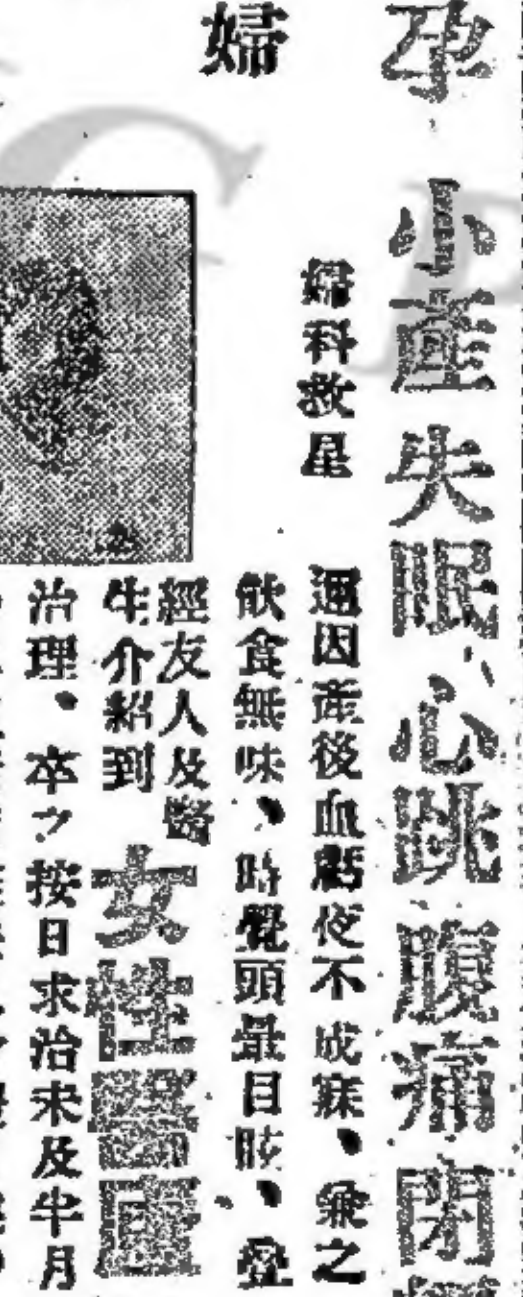 孕 小產 失眠、心跳 腹痛 閉
婦科救星
婦
遇因產後血虧夜不成寐、兼之
飲食無味、時覺頭暈目眩、疊
經友人及醫
生介紹到
女性醫庫
治理、卒之按日求治未及半月